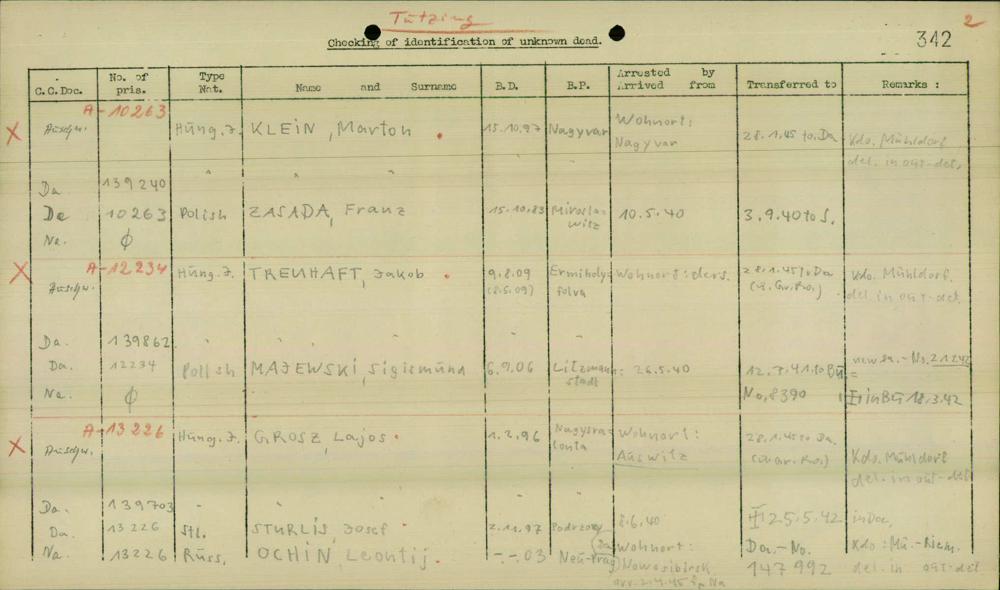 Tutzing
2
Checking of identification of unknown dead.
342
C.C.Doc. No. of pris. Type Nat. Name and Surname B.D. B.P. Arrested by Arrived from Transferred to Remarks :
A-10263
X Auschw. Hung.J. KLEIN, Marton . 15.10.97 Nagyvar Wohnort: Nagyvar 28.1.45 to Da Kdo. Mühldorf del. in out-det.
Da 139240 " " "
Da 10263 Polish ZASADA, Franz 15.10.83 Miroslawitz 10.5.40 3.9.40 to S.
Na. ϕ
A-12234
X Auschw. Hung.J. TREUHAFT, Jakob . 9.8.09 (8.6.09) Wohnort: ders. 28.1.45 to Da (v. Gr.Ro.) Kdo. Mühldorf. del. in out-det.
Da. 139862 " " "
Da. 12234 Polish MAJEWSKI, Sigismund 6.9.06 Litzmannstadt 26.5.40 No. 8390
Na. ϕ
A-13226
X Auschw. Hung.J. GROSZ, Lajos . 1.2.96 Wohnort: Auswitz 28.1.45 to Da. (v. Gr. Ro.) Kdo. Mühldorf del. in out-det
Da. 139703 " " "
Da. 13226 Stl. STURLIS, Josef 2.11.97 8.6.40 25.5.42 in Da.
Na. 13226 Russ. OCHIN, Leontij . - - 03 Wohnort: Nowosibirsk Da.-No. 147992 del. in out-det